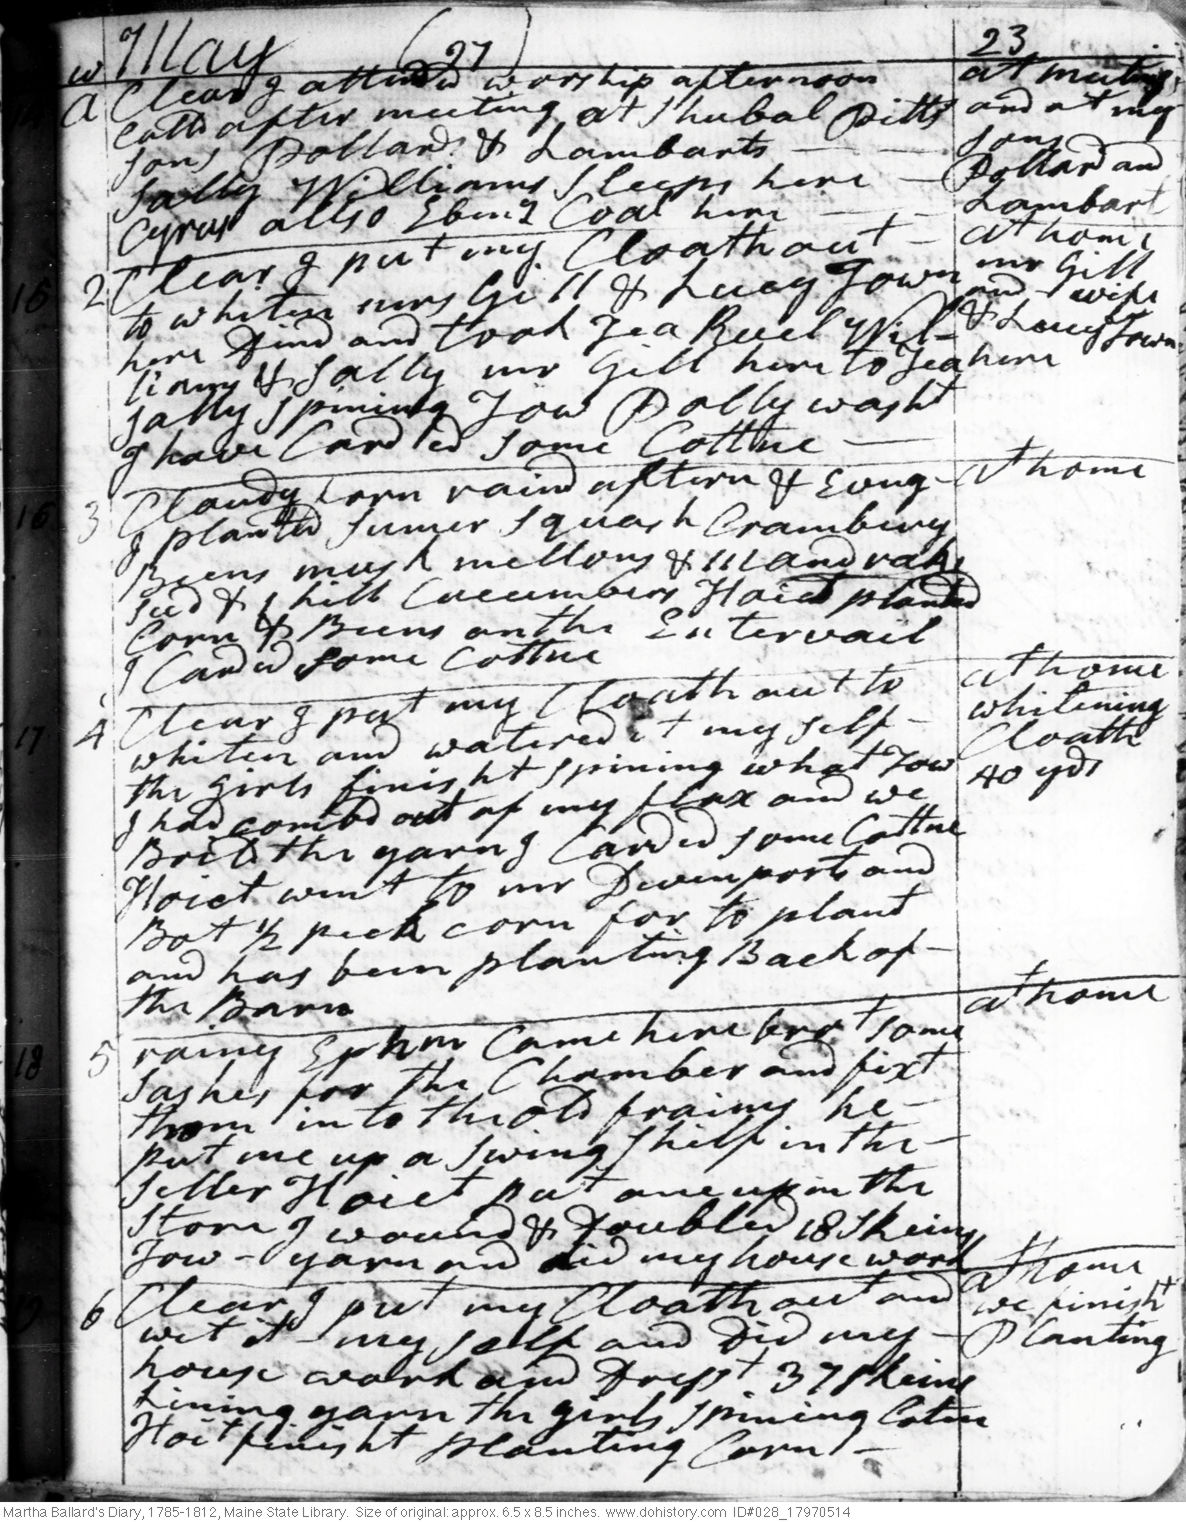 w May (27) 23
14 A Clear I attended worship afternoon
Calld after meeting at Shubal Pitts
sons Pollards & Lambarts
Sally Williams Sleeps here
Cyrus allso Ebenz Coal here
at meeting
and at my
sons
Pollard and
Lambart
15 2 Clear I put my Cloath out
to whiten mrs Gill & Lucy Town
here Dind and took Tea Ruel Wil-
liams & Sally mr Gill here to Tea
Sally Spining Tow Dolly washt
I have Carded some Cottne
at home
mr Gill
and wife
& Lucy Town
here
16 3 Cloudy forn raind aftern & Evng
I planted sumer squash Crambery
Beens musk mellons & Mandrake
seed & 1 hill Cucumbers Hoict planted
Corn & Beens on the Intervail
I Carded some Cottne
at home
17 4 Clear I put my Cloath out to
whiten and watered it my self
the girls finisht spining what Tow
I had combd out of my flax and we
Boild the yarn I Carded some Cottne
Hoict went to mr Devenports and
Bot 1/2 peck corn for to plant
and has been planting Back of
the Barn
at home
whitening
Cloath
40 yds
18 5 rainy Ephm Came here brot some
sashes for the Chamber and fixt
them into the old fraims he
put me up a swing shelf in the
seller Hoict put one up in the
Store I wound & Doubled 18 skeins
Tow yarn and did my house work
at home
19 6 Clear I put my Cloath out and
wet it my self and Did my
house work and Dresst 37 skeins
Lining yarn the girls spining Cotne
Hoit finisht planting Corn
at home
we finisht
Planting
Martha Ballard's Diary, 1785-1812, Maine State Library. Size of original: approx. 6.5 x 8.5 inches. www.dohistory.com ID#028_17970514